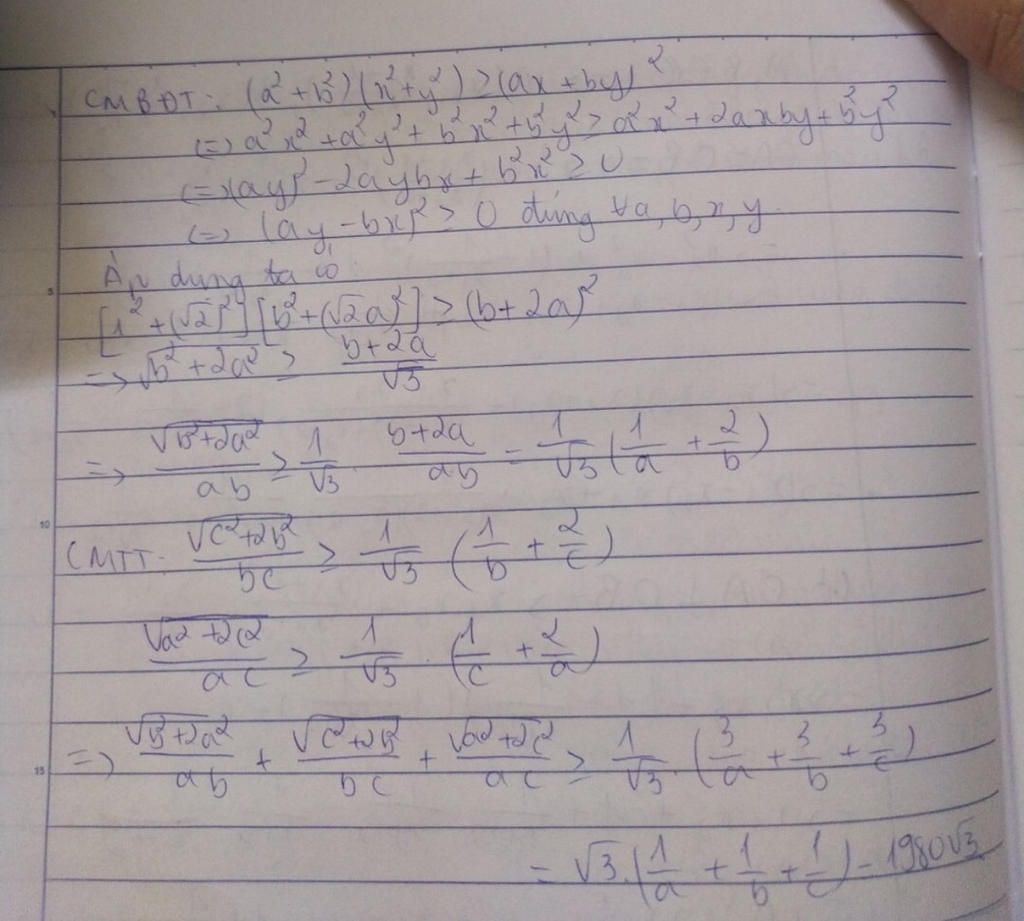 CMBĐT: (a² + b²)(x² + y²) ≥ (ax + by)²
(=) a²x² + a²y² + b²x² + b²y² ≥ a²x² + 2axby + b²y²
(=) (ay)² - 2aybx + b²x² ≥ 0
(=) (ay - bx)² ≥ 0 đúng ∀a, b, x, y.
Áp dụng ta có
[1² + (√2)²][b² + (√2a)²] ≥ (b + 2a)²
=> √(b² + 2a²) ≥ (b + 2a)/√3
=> √(b² + 2a²)/ab ≥ 1/√3 · (b + 2a)/ab = 1/√3 (1/a + 2/b)
CMTT: √(c² + 2b²)/bc ≥ 1/√3 (1/b + 2/c)
√(a² + 2c²)/ac ≥ 1/√3 · (1/c + 2/a)
=> √(b² + 2a²)/ab + √(c² + 2b²)/bc + √(a² + 2c²)/ac ≥ 1/√3 · (3/a + 3/b + 3/c)
= √3 · (1/a + 1/b + 1/c) = 1980√3
5
10
15